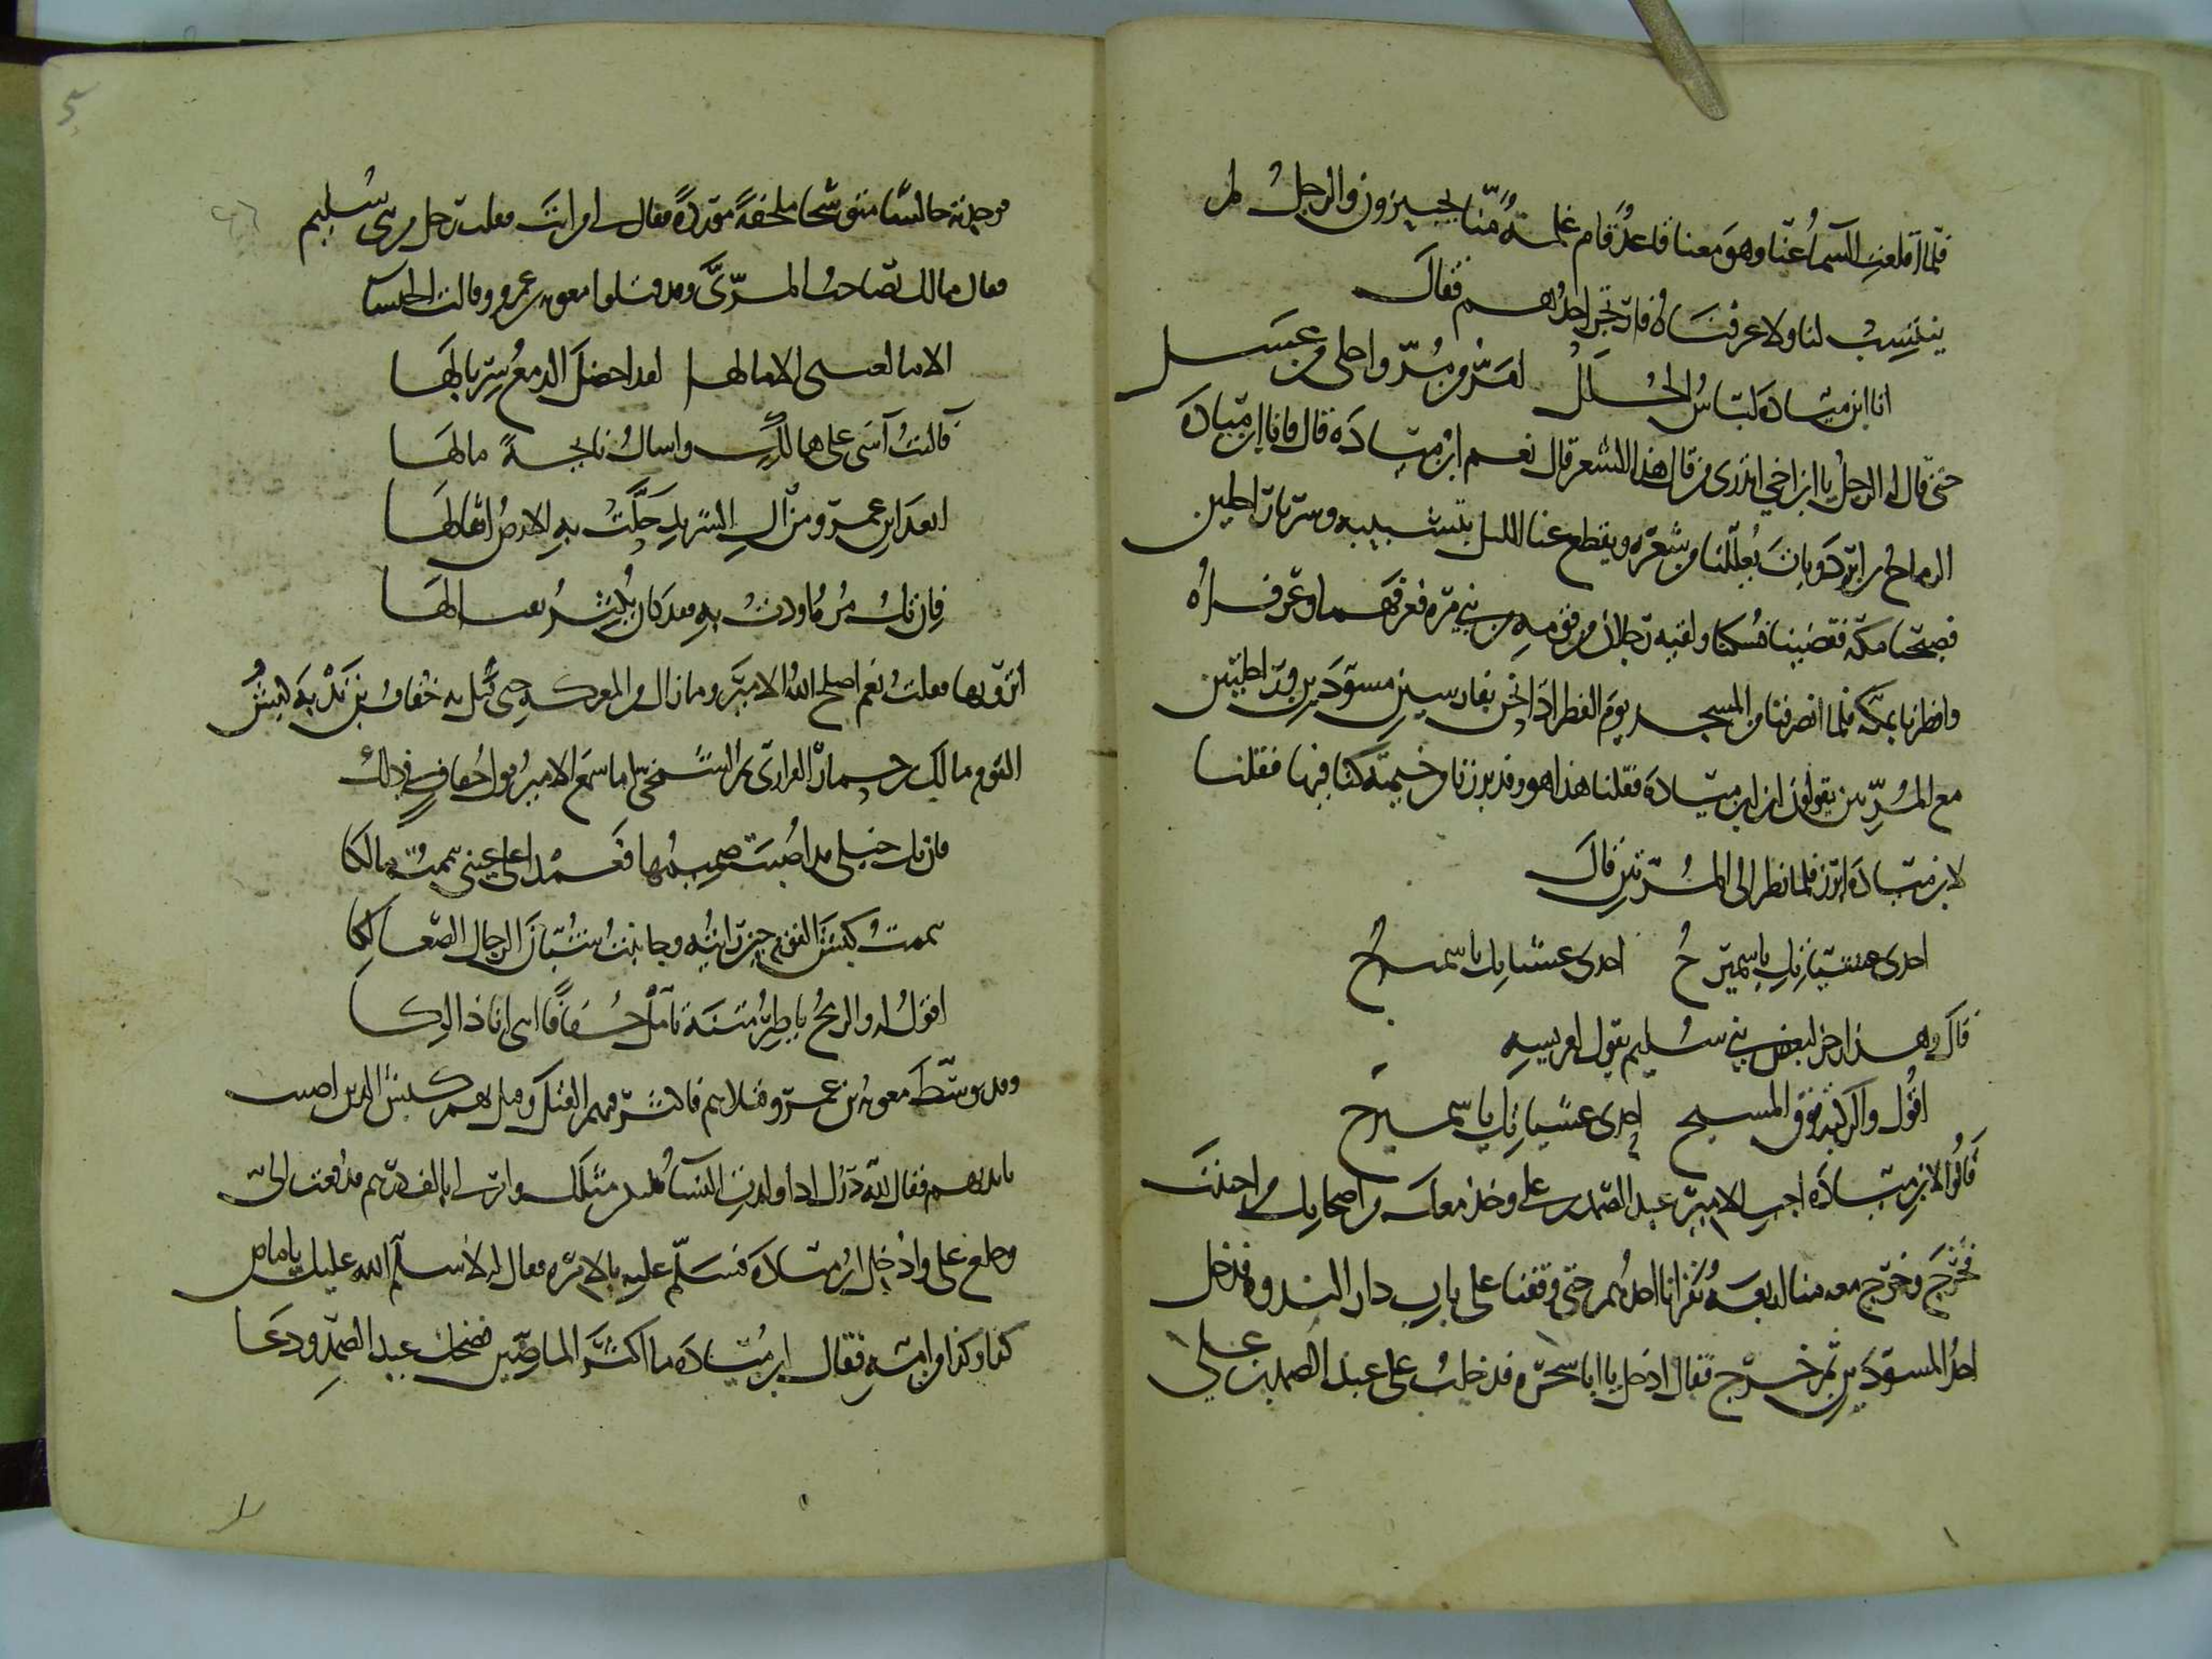 فلما اقلعت السماء عنا وهو معنا قاعد قام غلمة منا يجيزون والرجل لم
ينتسب لنا ولا عرفناه فارتجز احدهم فقال
انا ابن ميادة لباس الحلل امر من مر واحلى من عسل
حتى قال له الرجل يا ابن اخي اتدري من قال هذا الشعر قال نعم ابن ميادة قال فانا ابن ميادة
الرماح بن ابرد وبات يعللنا من شعره ويقطع عنا الليل بنشيده وسرينا راجلين
فصبحنا مكة فقضينا نسكنا ولقيه رجلان من قومه من بني مرة فعرفهما وعرفاه
وافطرنا بمكة فلما انصرفنا من المسجد يوم الفطر اذا نحن بفارسين مسودين وراجلين
مع المريين يقولون اين ابن ميادة فقلنا هذا هو وقد برزنا من خيمة كنا فيها فقلنا
لابن ميادة ابرز فلما نظر الى المريين قال
احدى عشياتك يا سميرح احدى عشياتك يا سميرح
قال وهذا رجز لبعض بني سليم يقول لفرسه
اقول والركبة فوق المسح احدى عشياتك يا سميرح
قالوا لابن ميادة اجب الامير عبد الصمد بن علي وخذ معك من اصحابك من احببت
فخرج وخرج معه منا اربعة نفر انا احدهم حتى وقفنا على باب دار الندوة فدخل
احد المسودين ثم خرج فقال ادخل يا ابا شجرة فدخلت على عبد الصمد بن علي
فوجدته جالسا متوشحا ملحفة موردة فقال لي من انت فقلت رجل من بني سليم
فقال مالك تصاحب المري وقد قتلوا معوية بن عمرو وقالت الخنساء
الا ما لعيني الا ما لها لقد اخضل الدمع سربالها
فآليت آسى على هالك واسال نائحة ما لها
ابعد ابن عمرو من آل الشريد حلت به الارض اثقالها
فان تك مرة اودت به فقد كان يكثر تقتالها
اترويها فقلت نعم اصلح الله الامير وما زال من المعركة حتى قتل به خفاف بن ندبة كبش
القوم مالك بن حمار الفزاري ثم الشمخي اما سمع الامير قول خفاف في ذلك
فان تك خيلي قد اصيب صميمها فعمدا على عيني تيممت مالكا
تيممت كبش القوم حين رايته وجانبت شبان الرجال الصعالكا
اقول له والرمح ياطر متنه تامل خفافا انني انا ذالكا
وقد توسط معوية بن عمرو خيلهم فاكثر فيهم القتل وقتل كبش الذين اصيب
بايديهم فقال لله درك اذا ولدت النساء فليلدن مثلك وامر لي بالف درهم فدفعت الي
وخلع علي وادخل ابن ميادة فسلم عليه بالامرة فقال له لا سلم الله عليك يا ماص
كذا وكذا من امه فقال ابن ميادة ما اكثر الماصين فضحك عبد الصمد ودعا